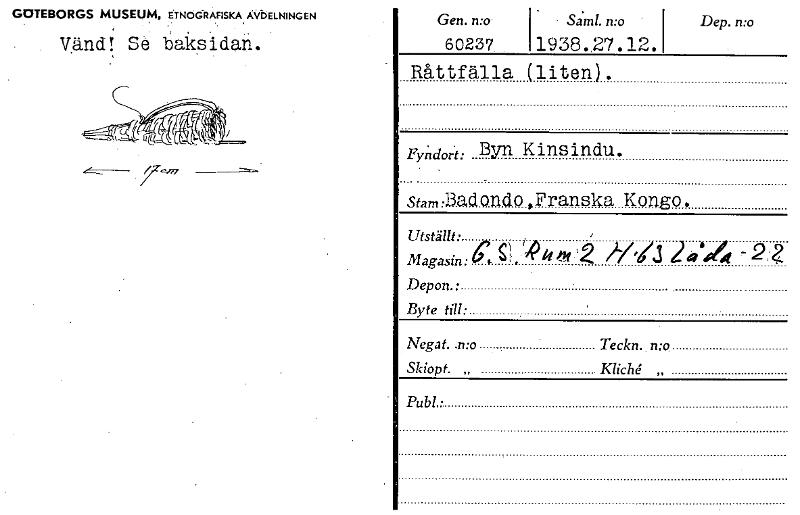 GÖTEBORGS MUSEUM, ETNOGRAFISKA AVDELNINGEN
Vänd! Se baksidan.
17cm
Gen. n:o Saml. n:o Dep. n:o
60237 1938.27.12.
Råttfälla (liten).
Fyndort: Byn Kinsindu.
Stam: Badondo, Franska Kongo.
Utställt:
Magasin: G.S. Rum 2 H.63 Låda-22
Depon.:
Byte till:
Negat. n:o Teckn. n:o
Skiopt. „ Kliché „
Publ.: